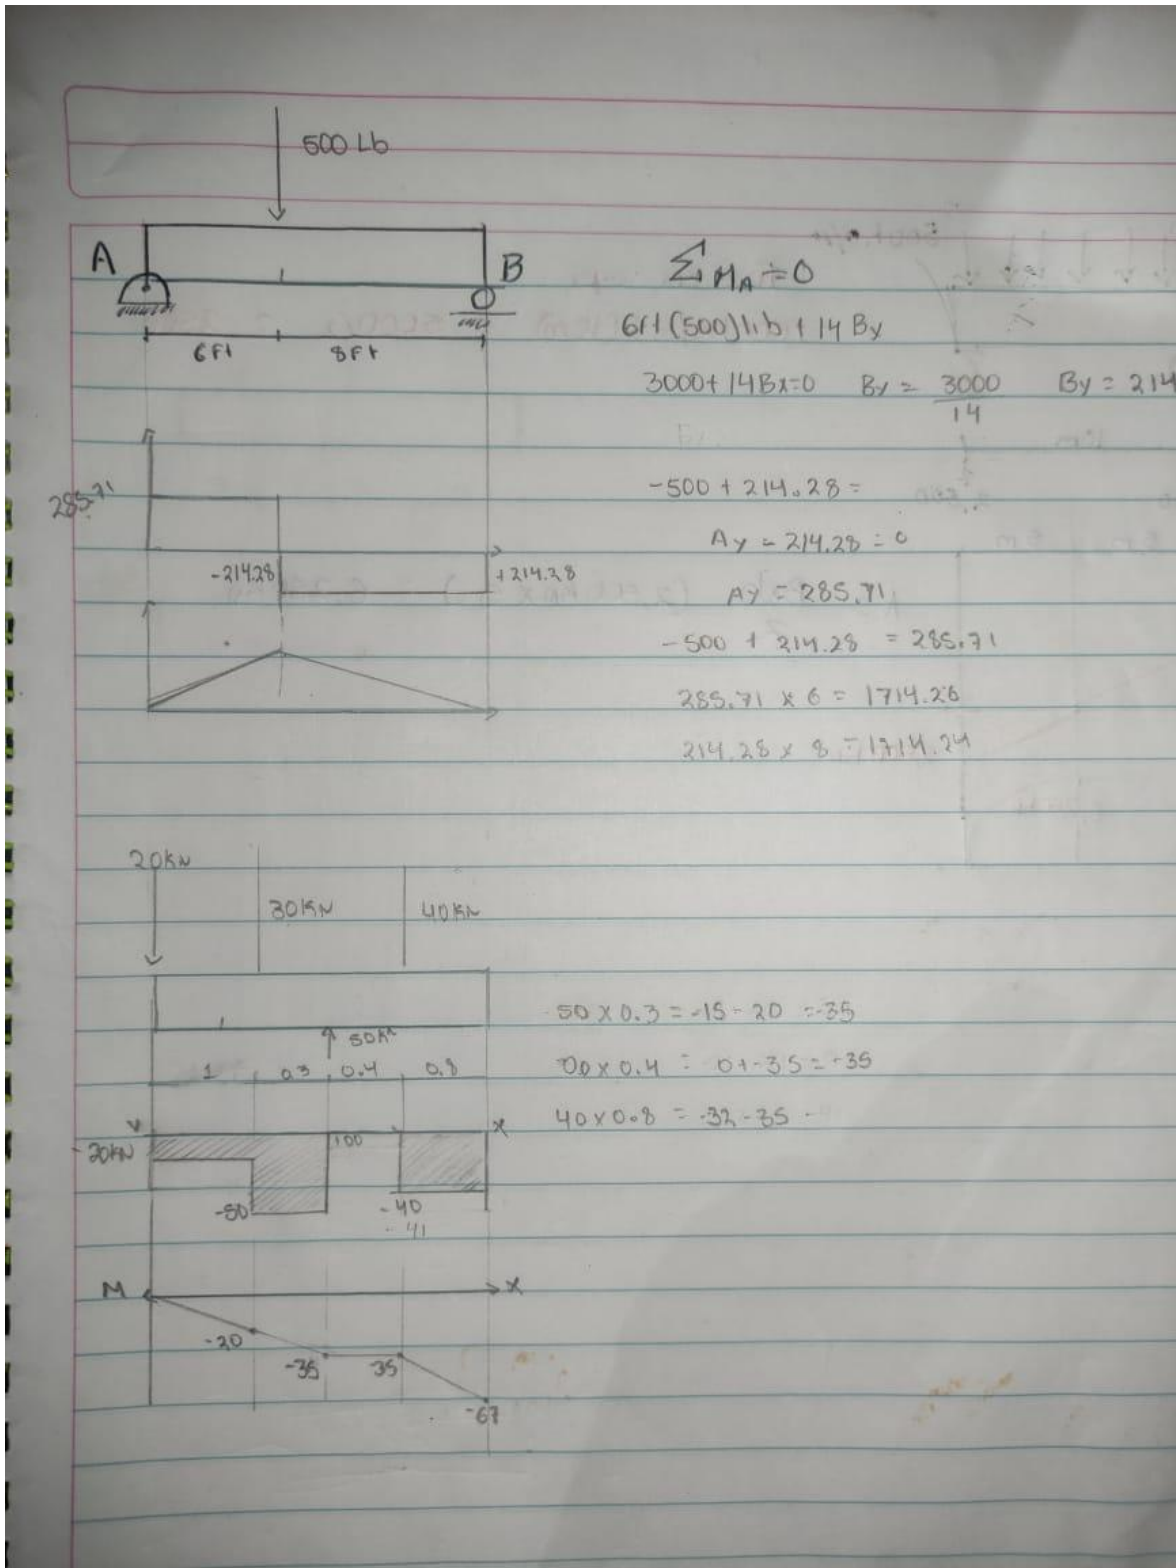 500 Lb
A
B
ΣMA = 0
6ft 8ft
6ft (500) lib + 14 By
3000 + 14Bx=0 By = 3000/14 By = 214
285.71
-500 + 214.28 =
Ay - 214.28 = 0
-214.28 +214.28
Ay = 285.71
-500 + 214.28 = 285.71
285.71 x 6 = 1714.26
214.28 x 8 = 1714.24
20KN
30KN 40KN
50 x 0.3 = -15 - 20 = -35
50K
1 0.3 0.4 0.8
00 x 0.4 = 0 + -35 = -35
40 x 0.8 = -32 - 35 -
V x
-20KN 00
-50 -40
-41
M x
-20
-35 35
-67